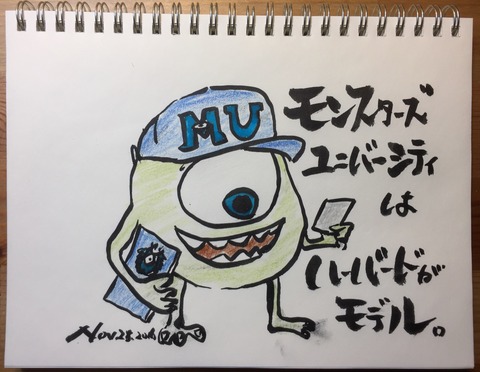 MU
モンスターズ
ユニバーシティ
は
ハーバードが
モデル。
Nov.28.2016